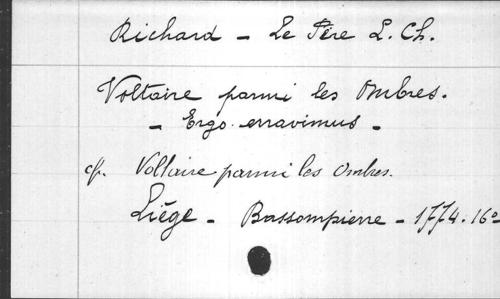 Richard - Le Père L. Ch.
Voltaire parmi les Ombres.
- Ergo erravimus -
cf. Voltaire parmi les Ombres.
Liège - Bassompierre - 1774. 16º